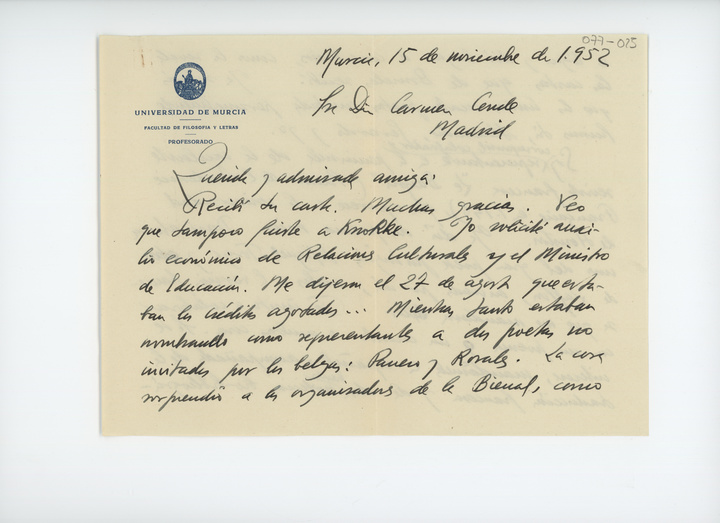 077-025
Murcia, 15 de noviembre de 1.952
UNIVERSIDAD DE MURCIA
FACULTAD DE FILOSOFIA Y LETRAS
PROFESORADO
Sra Dña Carmen Conde
Madrid
Querida y admirada amiga:
Recibí tu carta. Muchas gracias. Veo
que tampoco fuiste a Knokke. Yo solicité auxi-
lio económico de Relaciones Culturales y el Ministro
de Educación. Me dijeron el 27 de agosto que esta-
ban los créditos agotados... Mientras tanto estaban
nombrando como representantes a dos poetas no
invitados por los belgas: Panero y Rosales. La cosa
sorprendió a los organizadores de la Bienal, como